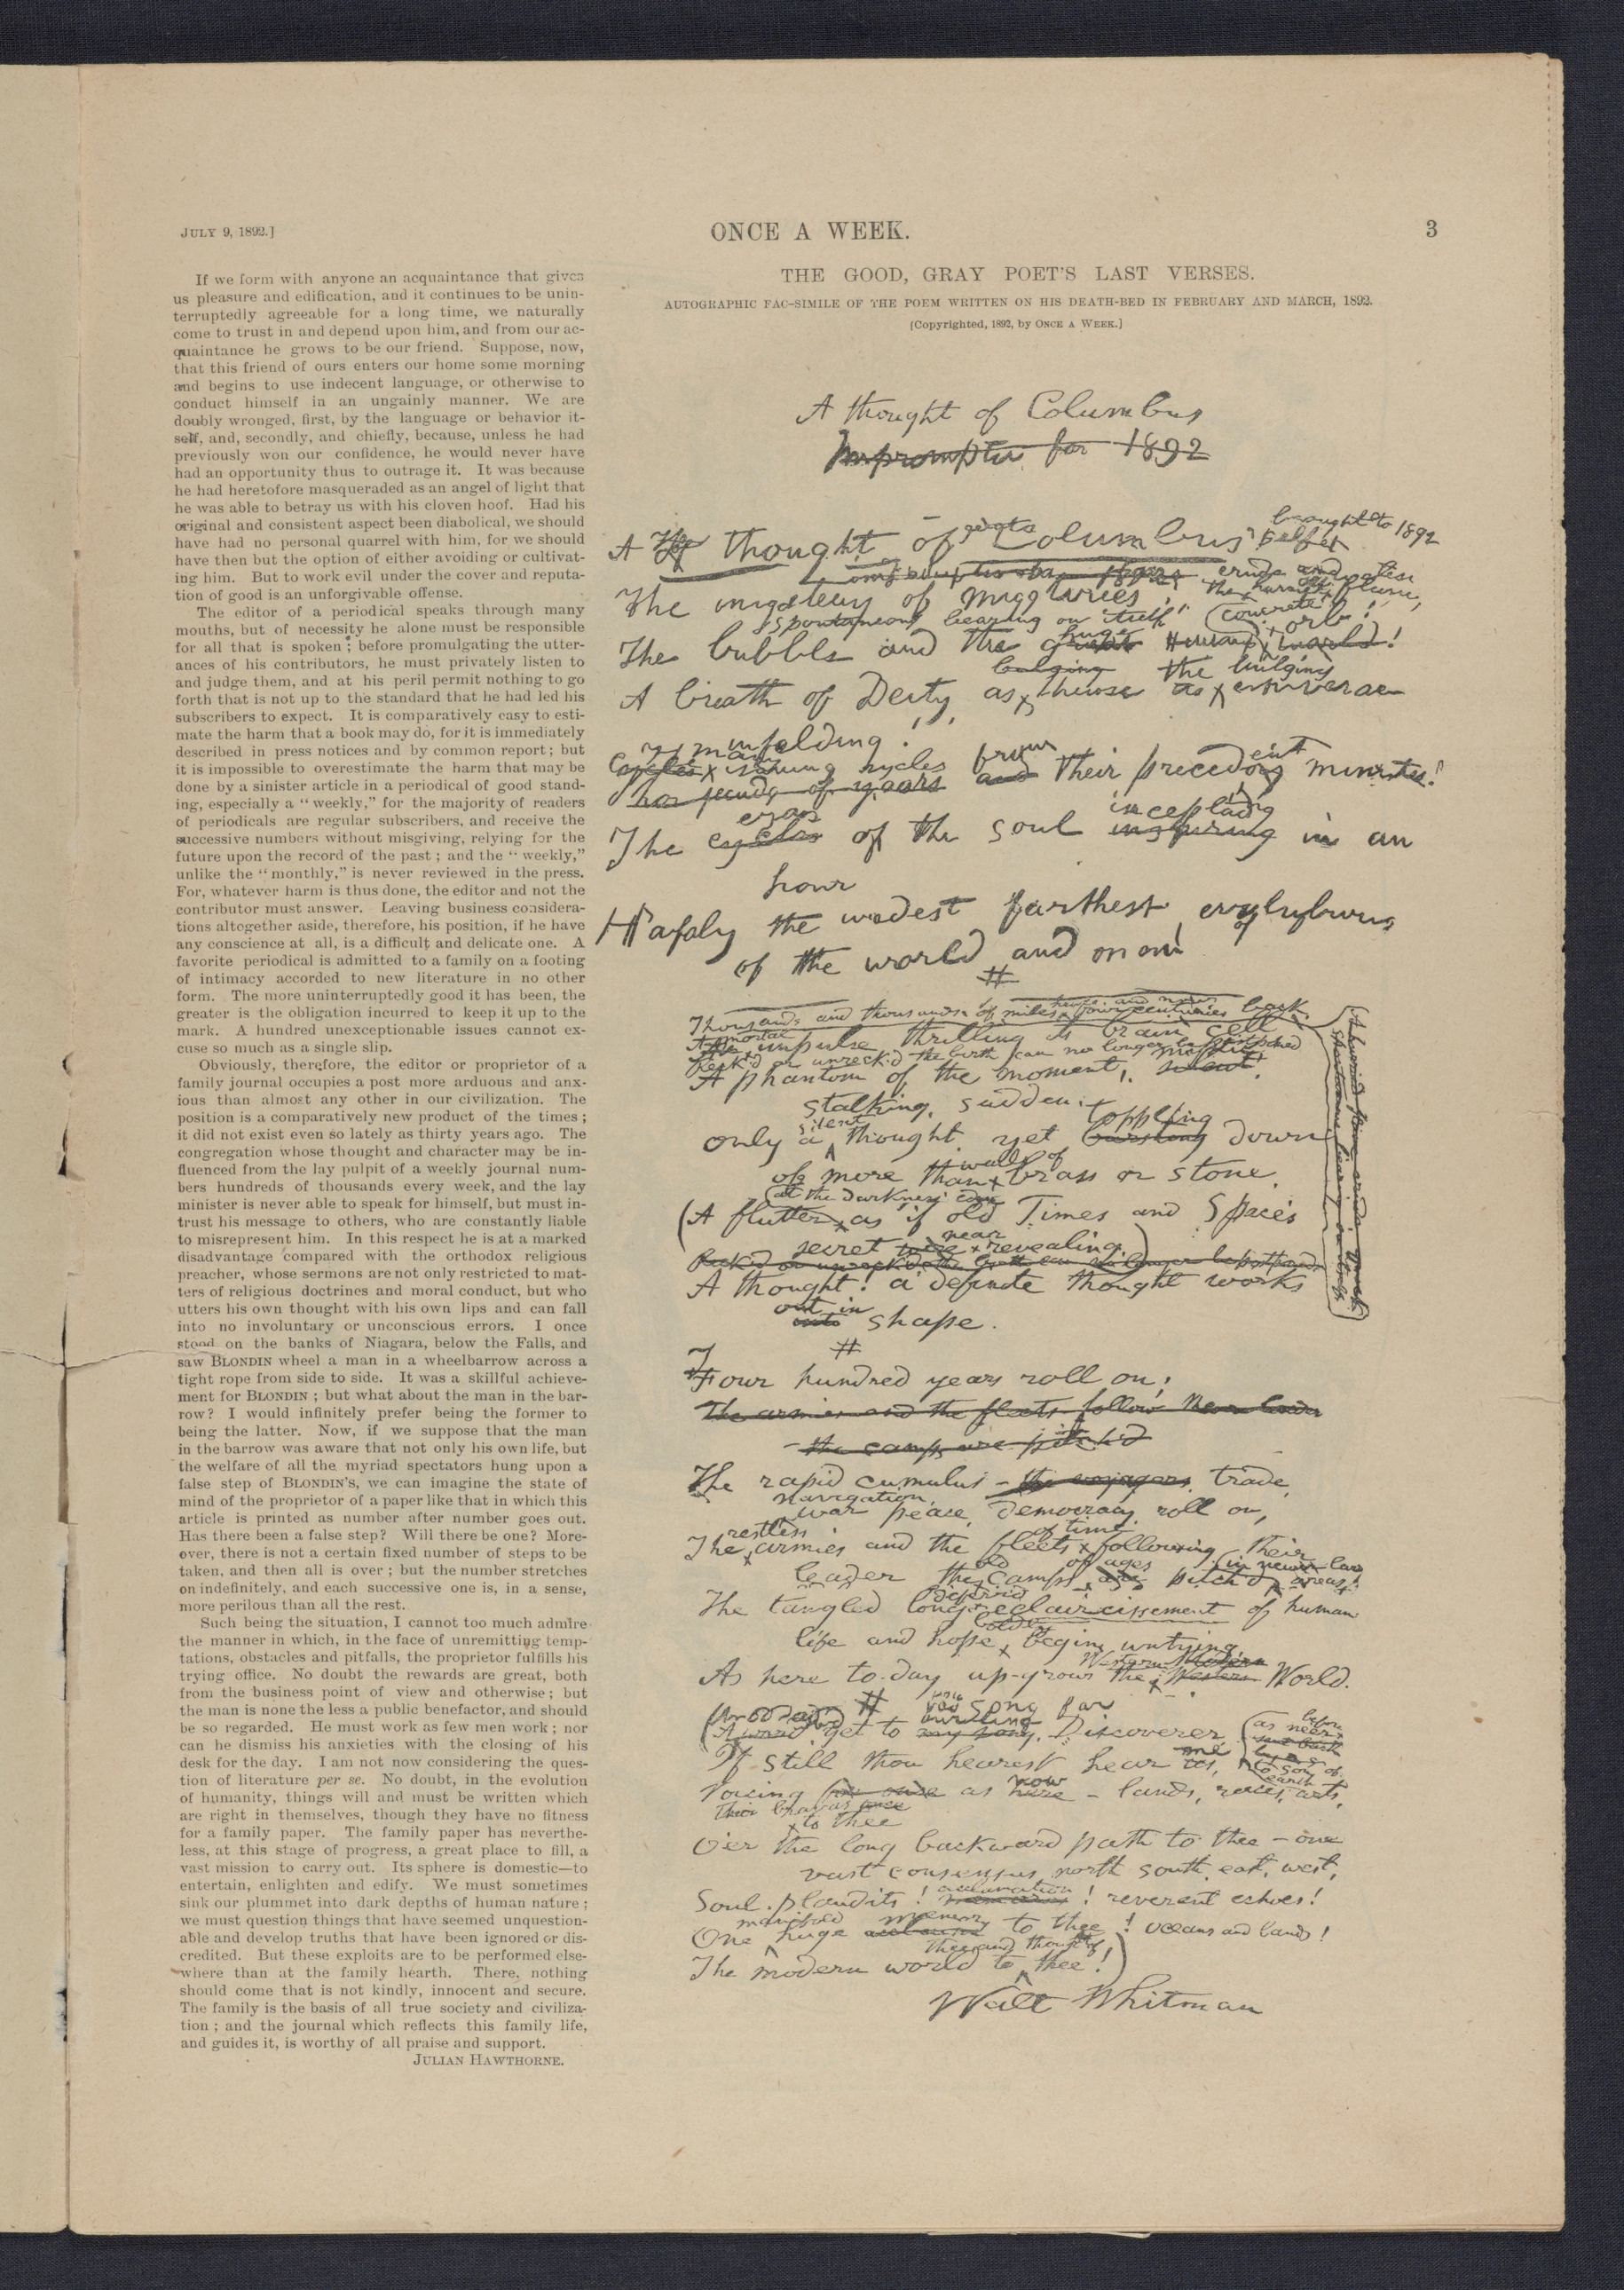 JULY 9, 1892.]
ONCE A WEEK.
3
If we form with anyone an acquaintance that gives
us pleasure and edification, and it continues to be unin-
terruptedly agreeable for a long time, we naturally
come to trust in and depend upon him, and from our ac-
quaintance he grows to be our friend. Suppose, now,
that this friend of ours enters our home some morning
and begins to use indecent language, or otherwise to
conduct himself in an ungainly manner. We are
doubly wronged, first, by the language or behavior it-
self, and, secondly, and chiefly, because, unless he had
previously won our confidence, he would never have
had an opportunity thus to outrage it. It was because
he had heretofore masqueraded as an angel of light that
he was able to betray us with his cloven hoof. Had his
original and consistent aspect been diabolical, we should
have had no personal quarrel with him, for we should
have then but the option of either avoiding or cultivat-
ing him. But to work evil under the cover and reputa-
tion of good is an unforgivable offense.
The editor of a periodical speaks through many
mouths, but of necessity he alone must be responsible
for all that is spoken; before promulgating the utter-
ances of his contributors, he must privately listen to
and judge them, and at his peril permit nothing to go
forth that is not up to the standard that he had led his
subscribers to expect. It is comparatively easy to esti-
mate the harm that a book may do, for it is immediately
described in press notices and by common report; but
it is impossible to overestimate the harm that may be
done by a sinister article in a periodical of good stand-
ing, especially a "weekly," for the majority of readers
of periodicals are regular subscribers, and receive the
successive numbers without misgiving, relying for the
future upon the record of the past; and the "weekly,"
unlike the "monthly," is never reviewed in the press.
For, whatever harm is thus done, the editor and not the
contributor must answer. Leaving business considera-
tions altogether aside, therefore, his position, if he have
any conscience at all, is a difficult and delicate one. A
favorite periodical is admitted to a family on a footing
of intimacy accorded to new literature in no other
form. The more uninterruptedly good it has been, the
greater is the obligation incurred to keep it up to the
mark. A hundred unexceptionable issues cannot ex-
cuse so much as a single slip.
Obviously, therefore, the editor or proprietor of a
family journal occupies a post more arduous and anx-
ious than almost any other in our civilization. The
position is a comparatively new product of the times;
it did not exist even so lately as thirty years ago. The
congregation whose thought and character may be in-
fluenced from the lay pulpit of a weekly journal num-
bers hundreds of thousands every week, and the lay
minister is never able to speak for himself, but must in-
trust his message to others, who are constantly liable
to misrepresent him. In this respect he is at a marked
disadvantage compared with the orthodox religious
preacher, whose sermons are not only restricted to mat-
ters of religious doctrines and moral conduct, but who
utters his own thought with his own lips and can fall
into no involuntary or unconscious errors. I once
stood on the banks of Niagara, below the Falls, and
saw BLONDIN wheel a man in a wheelbarrow across a
tight rope from side to side. It was a skillful achieve-
ment for BLONDIN; but what about the man in the bar-
row? I would infinitely prefer being the former to
being the latter. Now, if we suppose that the man
in the barrow was aware that not only his own life, but
the welfare of all the myriad spectators hung upon a
false step of BLONDIN'S, we can imagine the state of
mind of the proprietor of a paper like that in which this
article is printed as number after number goes out.
Has there been a false step? Will there be one? More-
over, there is not a certain fixed number of steps to be
taken, and then all is over; but the number stretches
on indefinitely, and each successive one is, in a sense,
more perilous than all the rest.
Such being the situation, I cannot too much admire
the manner in which, in the face of unremitting temp-
tations, obstacles and pitfalls, the proprietor fulfills his
trying office. No doubt the rewards are great, both
from the business point of view and otherwise; but
the man is none the less a public benefactor, and should
be so regarded. He must work as few men work; nor
can he dismiss his anxieties with the closing of his
desk for the day. I am not now considering the ques-
tion of literature per se. No doubt, in the evolution
of humanity, things will and must be written which
are right in themselves, though they have no fitness
for a family paper. The family paper has neverthe-
less, at this stage of progress, a great place to fill, a
vast mission to carry out. Its sphere is domestic—to
entertain, enlighten and edify. We must sometimes
sink our plummet into dark depths of human nature;
we must question things that have seemed unquestion-
able and develop truths that have been ignored or dis-
credited. But these exploits are to be performed else-
where than at the family hearth. There, nothing
should come that is not kindly, innocent and secure.
The family is the basis of all true society and civiliza-
tion; and the journal which reflects this family life,
and guides it, is worthy of all praise and support.
JULIAN HAWTHORNE.
THE GOOD, GRAY POET'S LAST VERSES.
AUTOGRAPHIC FAC-SIMILE OF THE POEM WRITTEN ON HIS DEATH-BED IN FEBRUARY AND MARCH, 1892.
[Copyrighted, 1892, by ONCE A WEEK.]
A thought of Columbus
Impromptu for 1892
brought to 1892
A thought of Columbus'
crude and
The mystery of mysteries,
the hurried
spontaneous bearing on itself!
concrete orb!
The bubble and the huge
bulging the bulging
A breath of Deity, as thence
unfolding!
issuing cycles from their precedent minutes!
eras incepting
The of the soul in an
hour
Haply the widest farthest evolutions
of the world and man
#
Thousands and thousands of miles hence and now four centuries back.
A mortal impulse thrilling its brain cell
Reck'd or unreck'd the birth can no longer be postponed
A phantom of the moment,
stalking, sudden
silent toppling
only a thought yet bursting down
walls of
of more than brass or stone.
(at the darkness' edge
(A flutter as if old Times and Space's
near
secret revealing)
Reck'd or unreck'd the birth can no longer be postponed
A thought! a definite thought works
out in
into shape.
#
Four hundred years roll on;
The armies and the fleets follow
the camps are pitch'd
The rapid cumulus – the voyagers trade,
navigation,
war peace, democracy roll on,
restless of time
The armies and the fleets following their
old of ages in newer
leader the camps are pitch'd areas!
deferr'd
The tangled long eclaircissement of human
life and hope begins untying,
Western
As here to-day up-grows the Western World.
#
song far
yet to my song, Discoverer
as never before
If still thou hearest hear me
to son of earth
now
Voicing as here – lands, races, arts,
to thee
O'er the long backward path to thee – one
vast consensus north south east, west,
acclamation
Soul plaudits! ! reverent echoes!
manifold memory
One huge to thee! oceans and lands!
thee and thought of
The modern world to thee!)
Walt Whitman